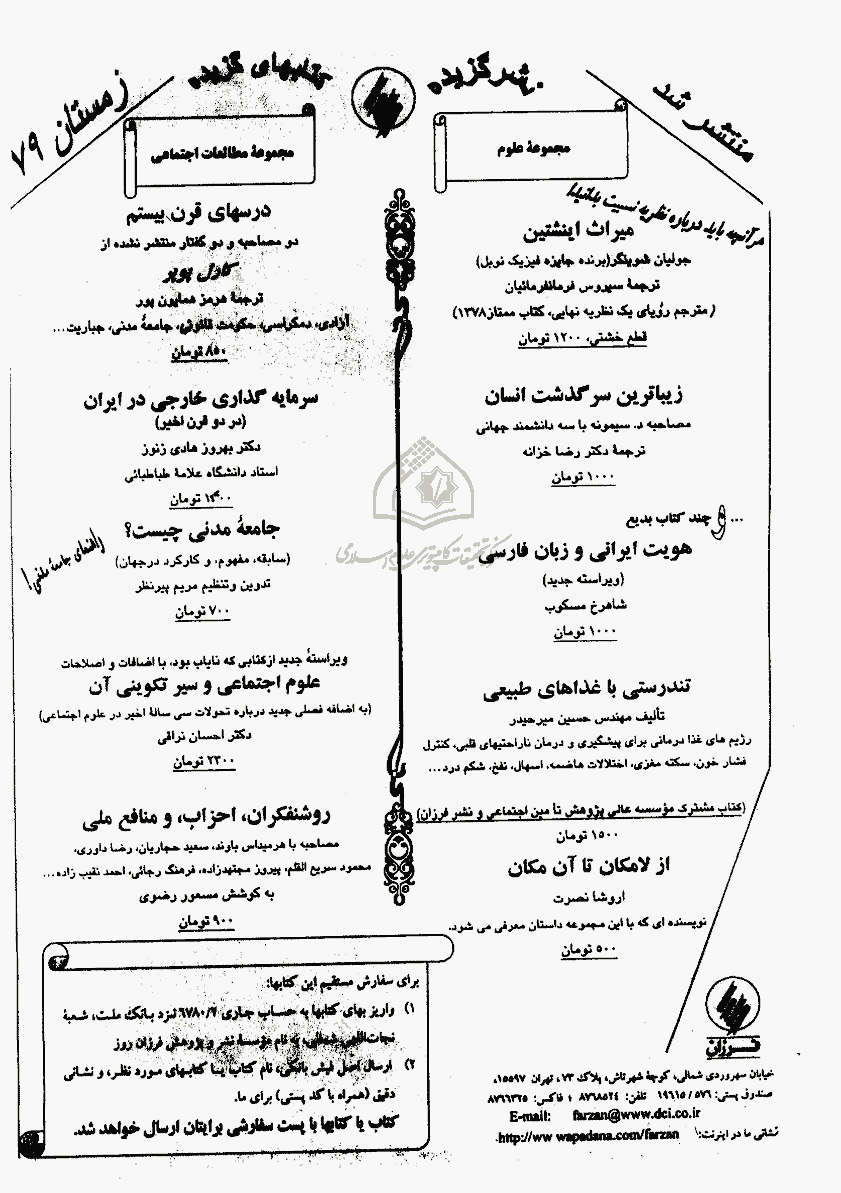 منتشر شد
نشر گزیده
کتابهای گزیده
زمستان ۷۹
مجموعهٔ علوم
هرآنچه باید درباره نظریه نسبیت بدانید!
میراث اینشتین
جولیان شوینگر(برنده جایزه فیزیک نوبل)
ترجمهٔ سیروس فرمانفرمائیان
(مترجم رؤیای یک نظریه نهایی، کتاب ممتاز۱۳۷۸)
قطع خشتی، ۱۲۰۰ تومان
زیباترین سرگذشت انسان
مصاحبه د. سیمونه با سه دانشمند جهانی
ترجمهٔ دکتر رضا خزانه
۱۰۰۰ تومان
... و چند کتاب بدیع
هویت ایرانی و زبان فارسی
(ویراسته جدید)
شاهرخ مسکوب
۱۰۰۰ تومان
تندرستی با غذاهای طبیعی
تألیف مهندس حسین میرحیدر
رژیم های غذا درمانی برای پیشگیری و درمان ناراحتیهای قلبی، کنترل
فشار خون، سکته مغزی، اختلالات هاضمه، اسهال، نفخ، شکم درد...
(کتاب مشترک مؤسسه عالی پژوهش تأمین اجتماعی و نشر فرزان)
۱۵۰۰ تومان
از لامکان تا آن مکان
اروشا نصرت
نویسنده ای که با این مجموعه داستان معرفی می شود.
۵۰۰ تومان
مجموعهٔ مطالعات اجتماعی
درسهای قرن بیستم
دو مصاحبه و دو گفتار منتشر نشده از
کارل پوپر
ترجمهٔ هرمز همایون پور
آزادی، دمکراسی، حکومت قانونی، جامعهٔ مدنی، جباریت...
۸۵۰ تومان
سرمایه گذاری خارجی در ایران
(در دو قرن اخیر)
دکتر بهروز هادی زنوز
استاد دانشگاه علامهٔ طباطبائی
تومان
جامعهٔ مدنی چیست؟
راهنمای جامعهٔ مدنی!
(سابقه، مفهوم، و کارکرد درجهان)
تدوین وتنظیم مریم پیرنظر
۷۰۰ تومان
ویراستهٔ جدید ازکتابی که نایاب بود، با اضافات و اصلاحات
علوم اجتماعی و سیر تکوینی آن
(به اضافه فصلی جدید درباره تحولات سی سالهٔ اخیر در علوم اجتماعی)
دکتر احسان نراقی
۲۳۰۰ تومان
روشنفکران، احزاب، و منافع ملی
مصاحبه با هرمیداس باوند، سعید حجاریان، رضا داوری،
محمود سریع القلم، پیروز مجتهدزاده، فرهنگ رجائی، احمد نقیب زاده...
به کوشش مسعور رضوی
۹۰۰ تومان
برای سفارش مستقیم این کتابها:
۱) واریز بهای کتابها به حساب جاری ۶۷۸۰/۷ نزد بانک ملت، شعبهٔ
نجات‌اللهی شمالی، به نام مؤسسهٔ نشر و پژوهش فرزان روز
۲) ارسال اصل فیش بانکی، نام کتاب یا کتابهای مورد نظر، و نشانی
دقیق (همراه با کد پستی) برای ما.
کتاب یا کتابها با پست سفارشی برایتان ارسال خواهد شد.
فرزان
خیابان سهروردی شمالی، کوچهٔ شهرتاش، پلاک ۷۳، تهران ۱۵۵۹۷.
صندوق پستی: ۵۷۶/ ۱۹۶۱۵ تلفن: ۸۷۶۸۵۲۴ ؛ فاکس: ۸۷۶۶۳۲۵
E-mail: farzan@www.dci.co.ir
نشانی ما در اینترنت: \http://ww wapadana.com/farzan
مرکز تحقیقات کامپیوتری علوم اسلامی